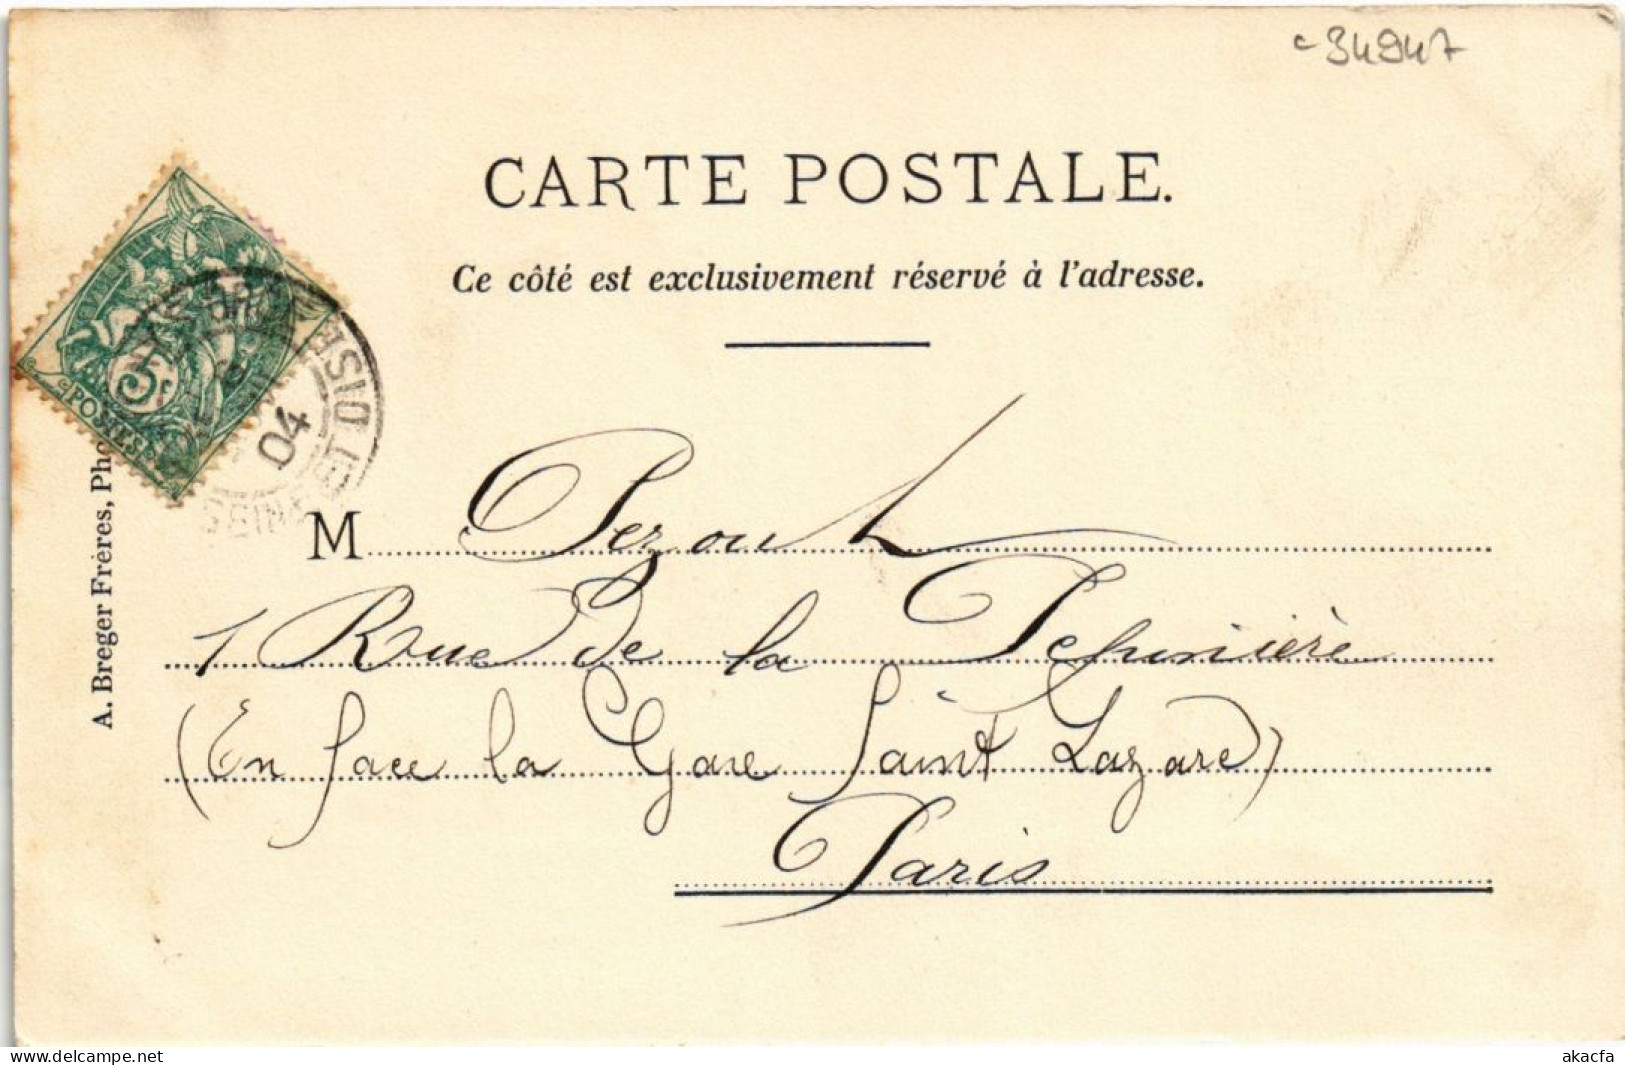 c-34947
CARTE POSTALE.
Ce côté est exclusivement réservé à l'adresse.
5
POSTES
04
SEINE ET OISE
A. Breger Frères, Pho
M Pezout
1 Rue de la Pépinière
(En face la Gare Saint Lazare)
Paris
www.delcampe.net
akacfa